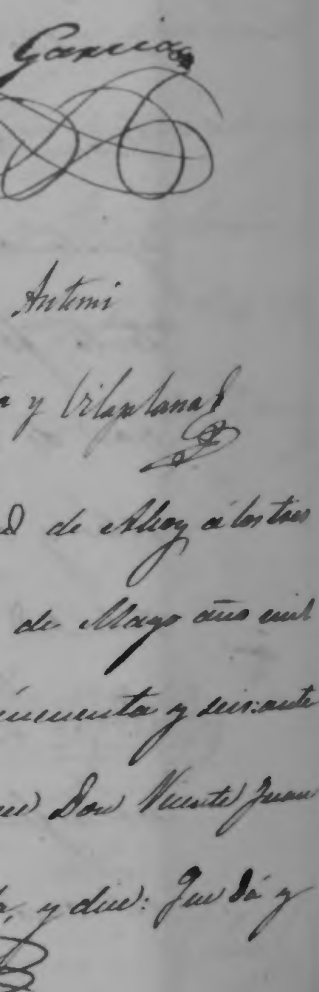 Garcia
Antemi
y Vilaplana
d de Alcoy á los tres
de Mayo año mil
cincuenta y seis: ante
Don Vicente Juan
y dice: Que dá y